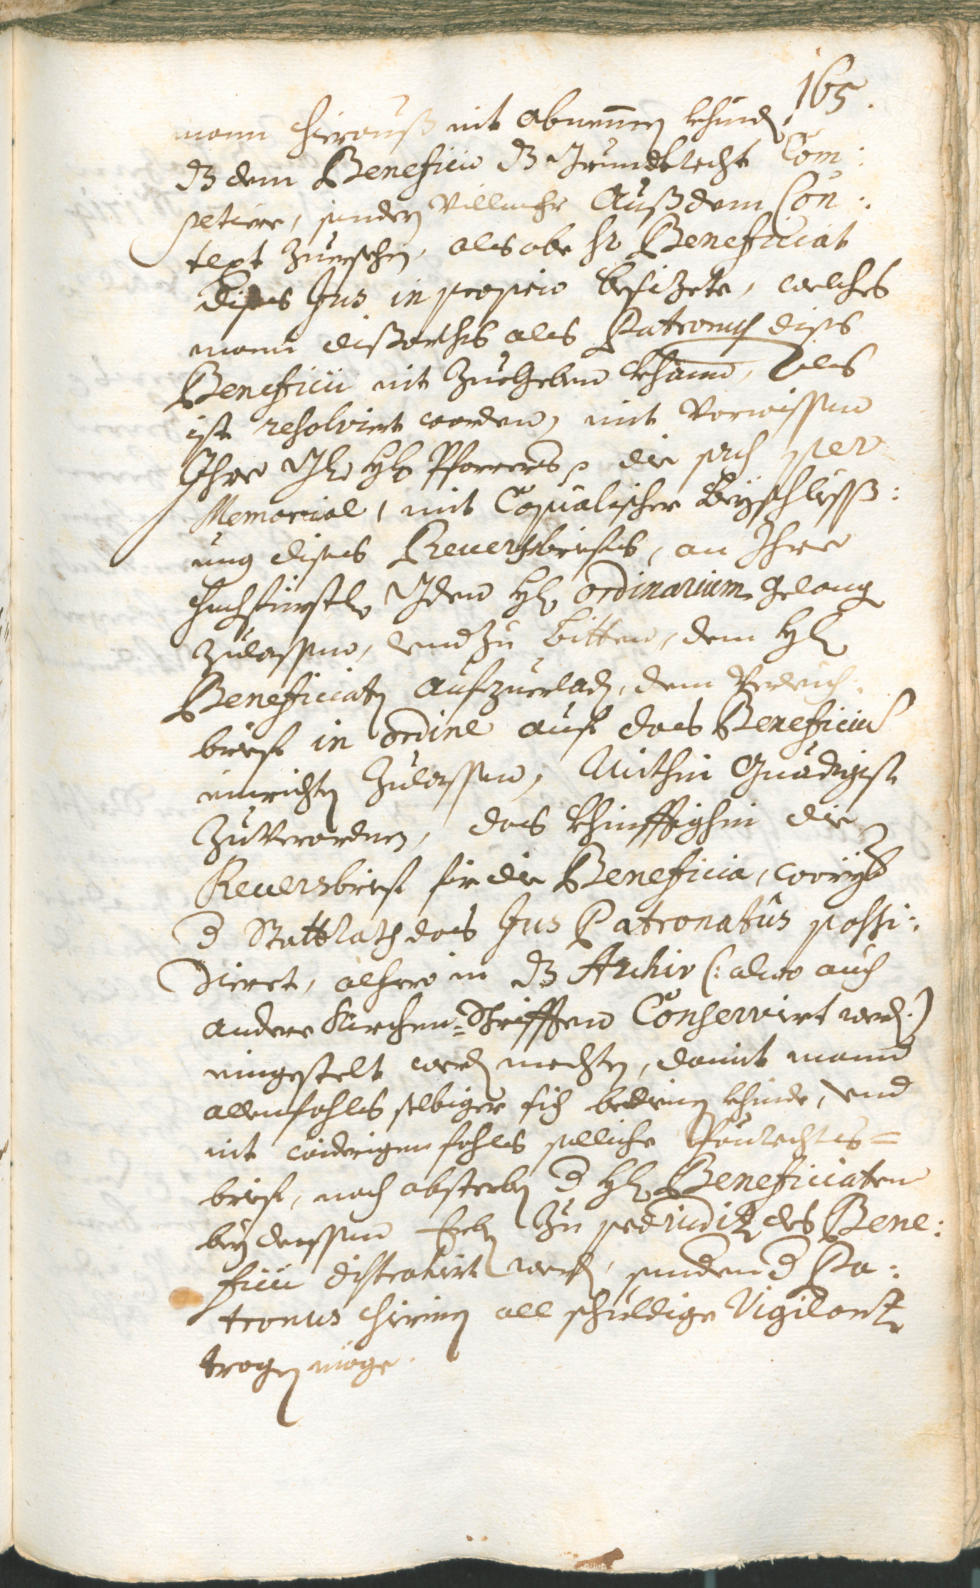 165.
mann hierauß nit abnemmen khind,
dz dem Beneficio dz Grundtrecht Com:
petiere, sondern villmehr Auß dem Con:
text zuersehen, als obe hr Beneficiat
dises Jus in proprio besizete, welches
mann dißorths als Patronus dises
Beneficii nit zuegeben khann, Als
ist resolvirt worden, mit Vorwissen
Ihro Pfarrers die sach per
Memorial, mit Copialischer Beyschliess:
ung dises Reversbriefs, an Ihro
Hochfürstl. ordinarium gelang
zulassen, und zu bitten, dem H
Beneficiaten aufzuerladen, dem
brief in ordine auf das Beneficiu
einrichten zulassen, Mithin Gnädigist
zuverordnen, das khinfftighin die
Reversbrief für die Beneficia, worüber
d Stattrath das Jus Patronatus possi:
dieret, alhero in dz Archiv (: alwo auch
andere Kirchen-Schrifften Conservirt werd:)
eingestelt werden mechten, damit mann
allenfahls selbiger sich bedienen khinde, und
nit widrigenfahls solliche Paurechts=
brief, nach absterben d H Beneficiaten
bey dessen Erben zu praeiudiz des Bene:
ficii distrahirt werden, sondern d Pa:
tronus hierinen all schuldige Vigilantz
tragen möge.